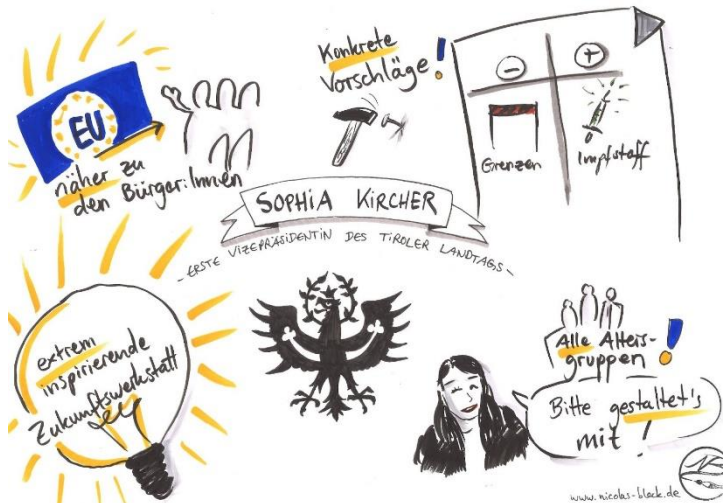 EU
näher zu
den Bürger:Innen
Konkrete
Vorschläge!
-
+
Grenzen
Impfstoff
SOPHiA KiRCHER
- ERSTE VIZEPRÄSIDENTIN DES TIROLER LANDTAGS -
extrem
inspirierende
Zukunftswerkstatt
Alle Alters-
gruppen!
Bitte gestaltet's
mit!
NB
www.nicolas-bleck.de